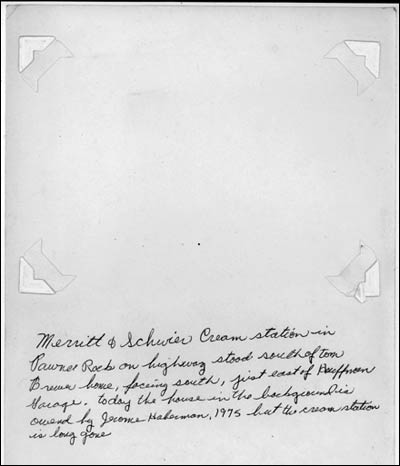 Merritt & Schwier Cream station in
Pawnee Rock on highway stood south of Tom
Brewer home, facing south, just east of Kauffman
Garage. today the house in the background is
owend by Jerome Haberman, 1975 but the cream station
is long gone